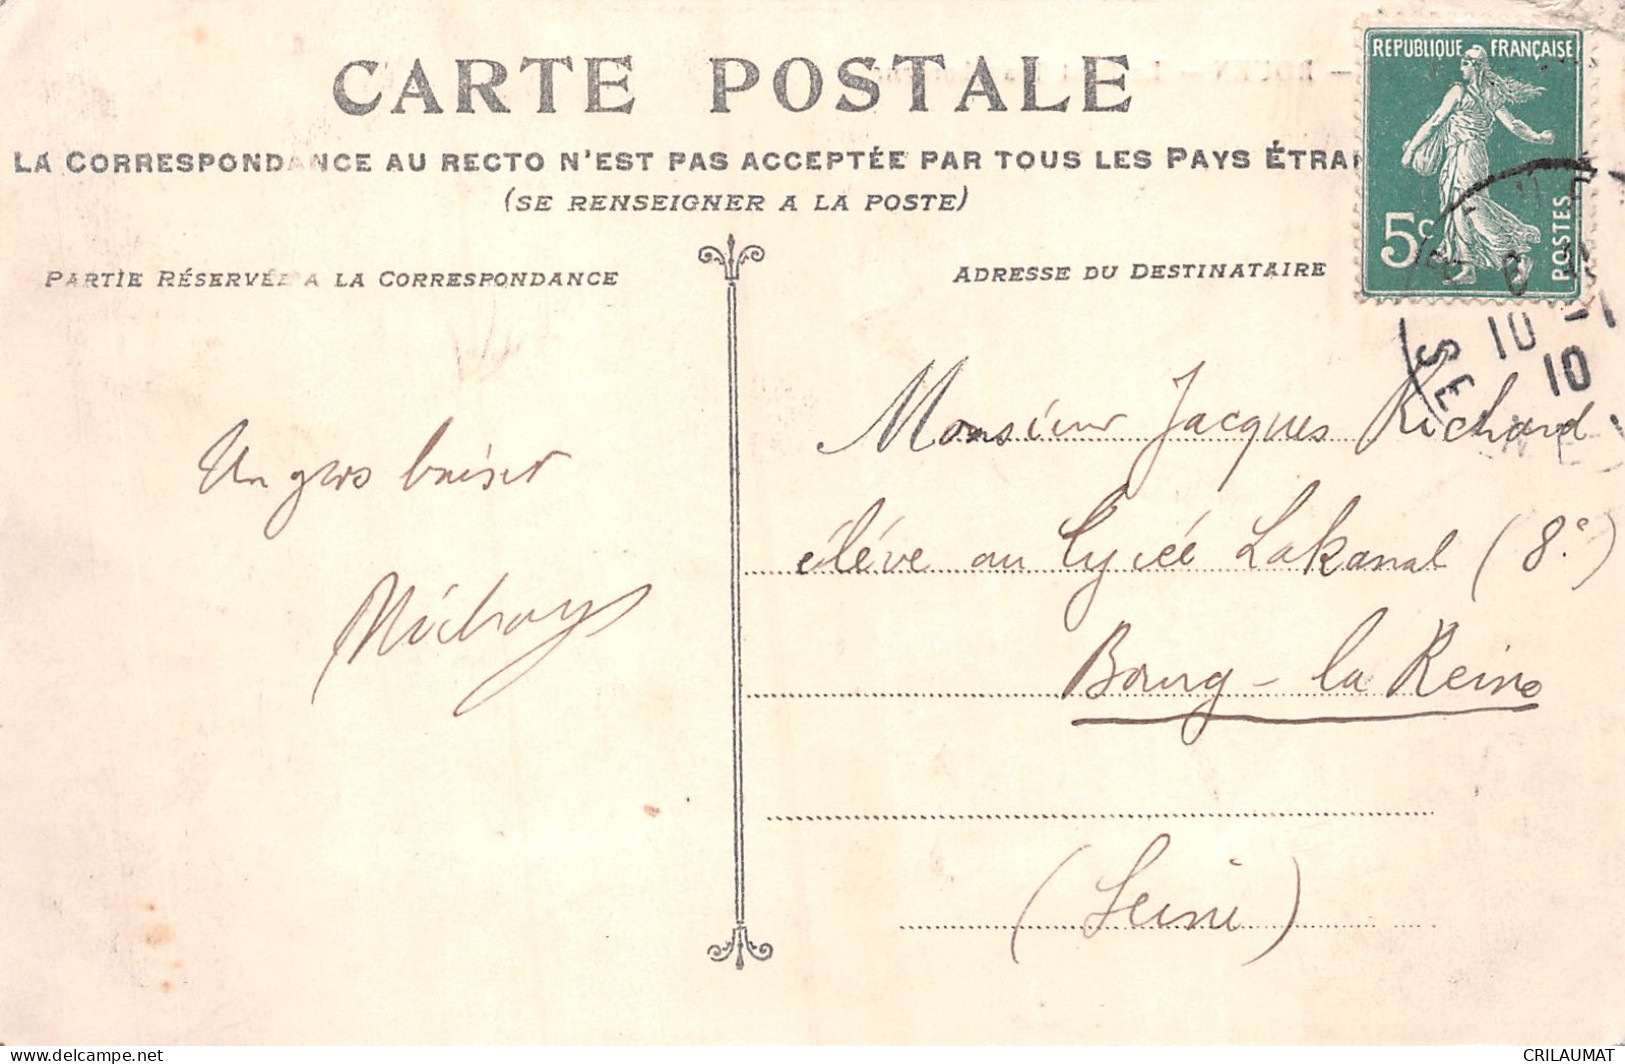 CARTE POSTALE
LA CORRESPONDANCE AU RECTO N'EST PAS ACCEPTÉE PAR TOUS LES PAYS ÉTRAN
(SE RENSEIGNER A LA POSTE)
PARTIE RÉSERVÉE A LA CORRESPONDANCE
ADRESSE DU DESTINATAIRE
REPUBLIQUE FRANÇAISE
5c
POSTES
10 -1
10
SEINE
Un gros baiser
Monsieur Jacques Richard
élève au lycée Lakanal (8e)
Bourg-la Reine
(Seine)
delcampe.net
CRILAUMAT